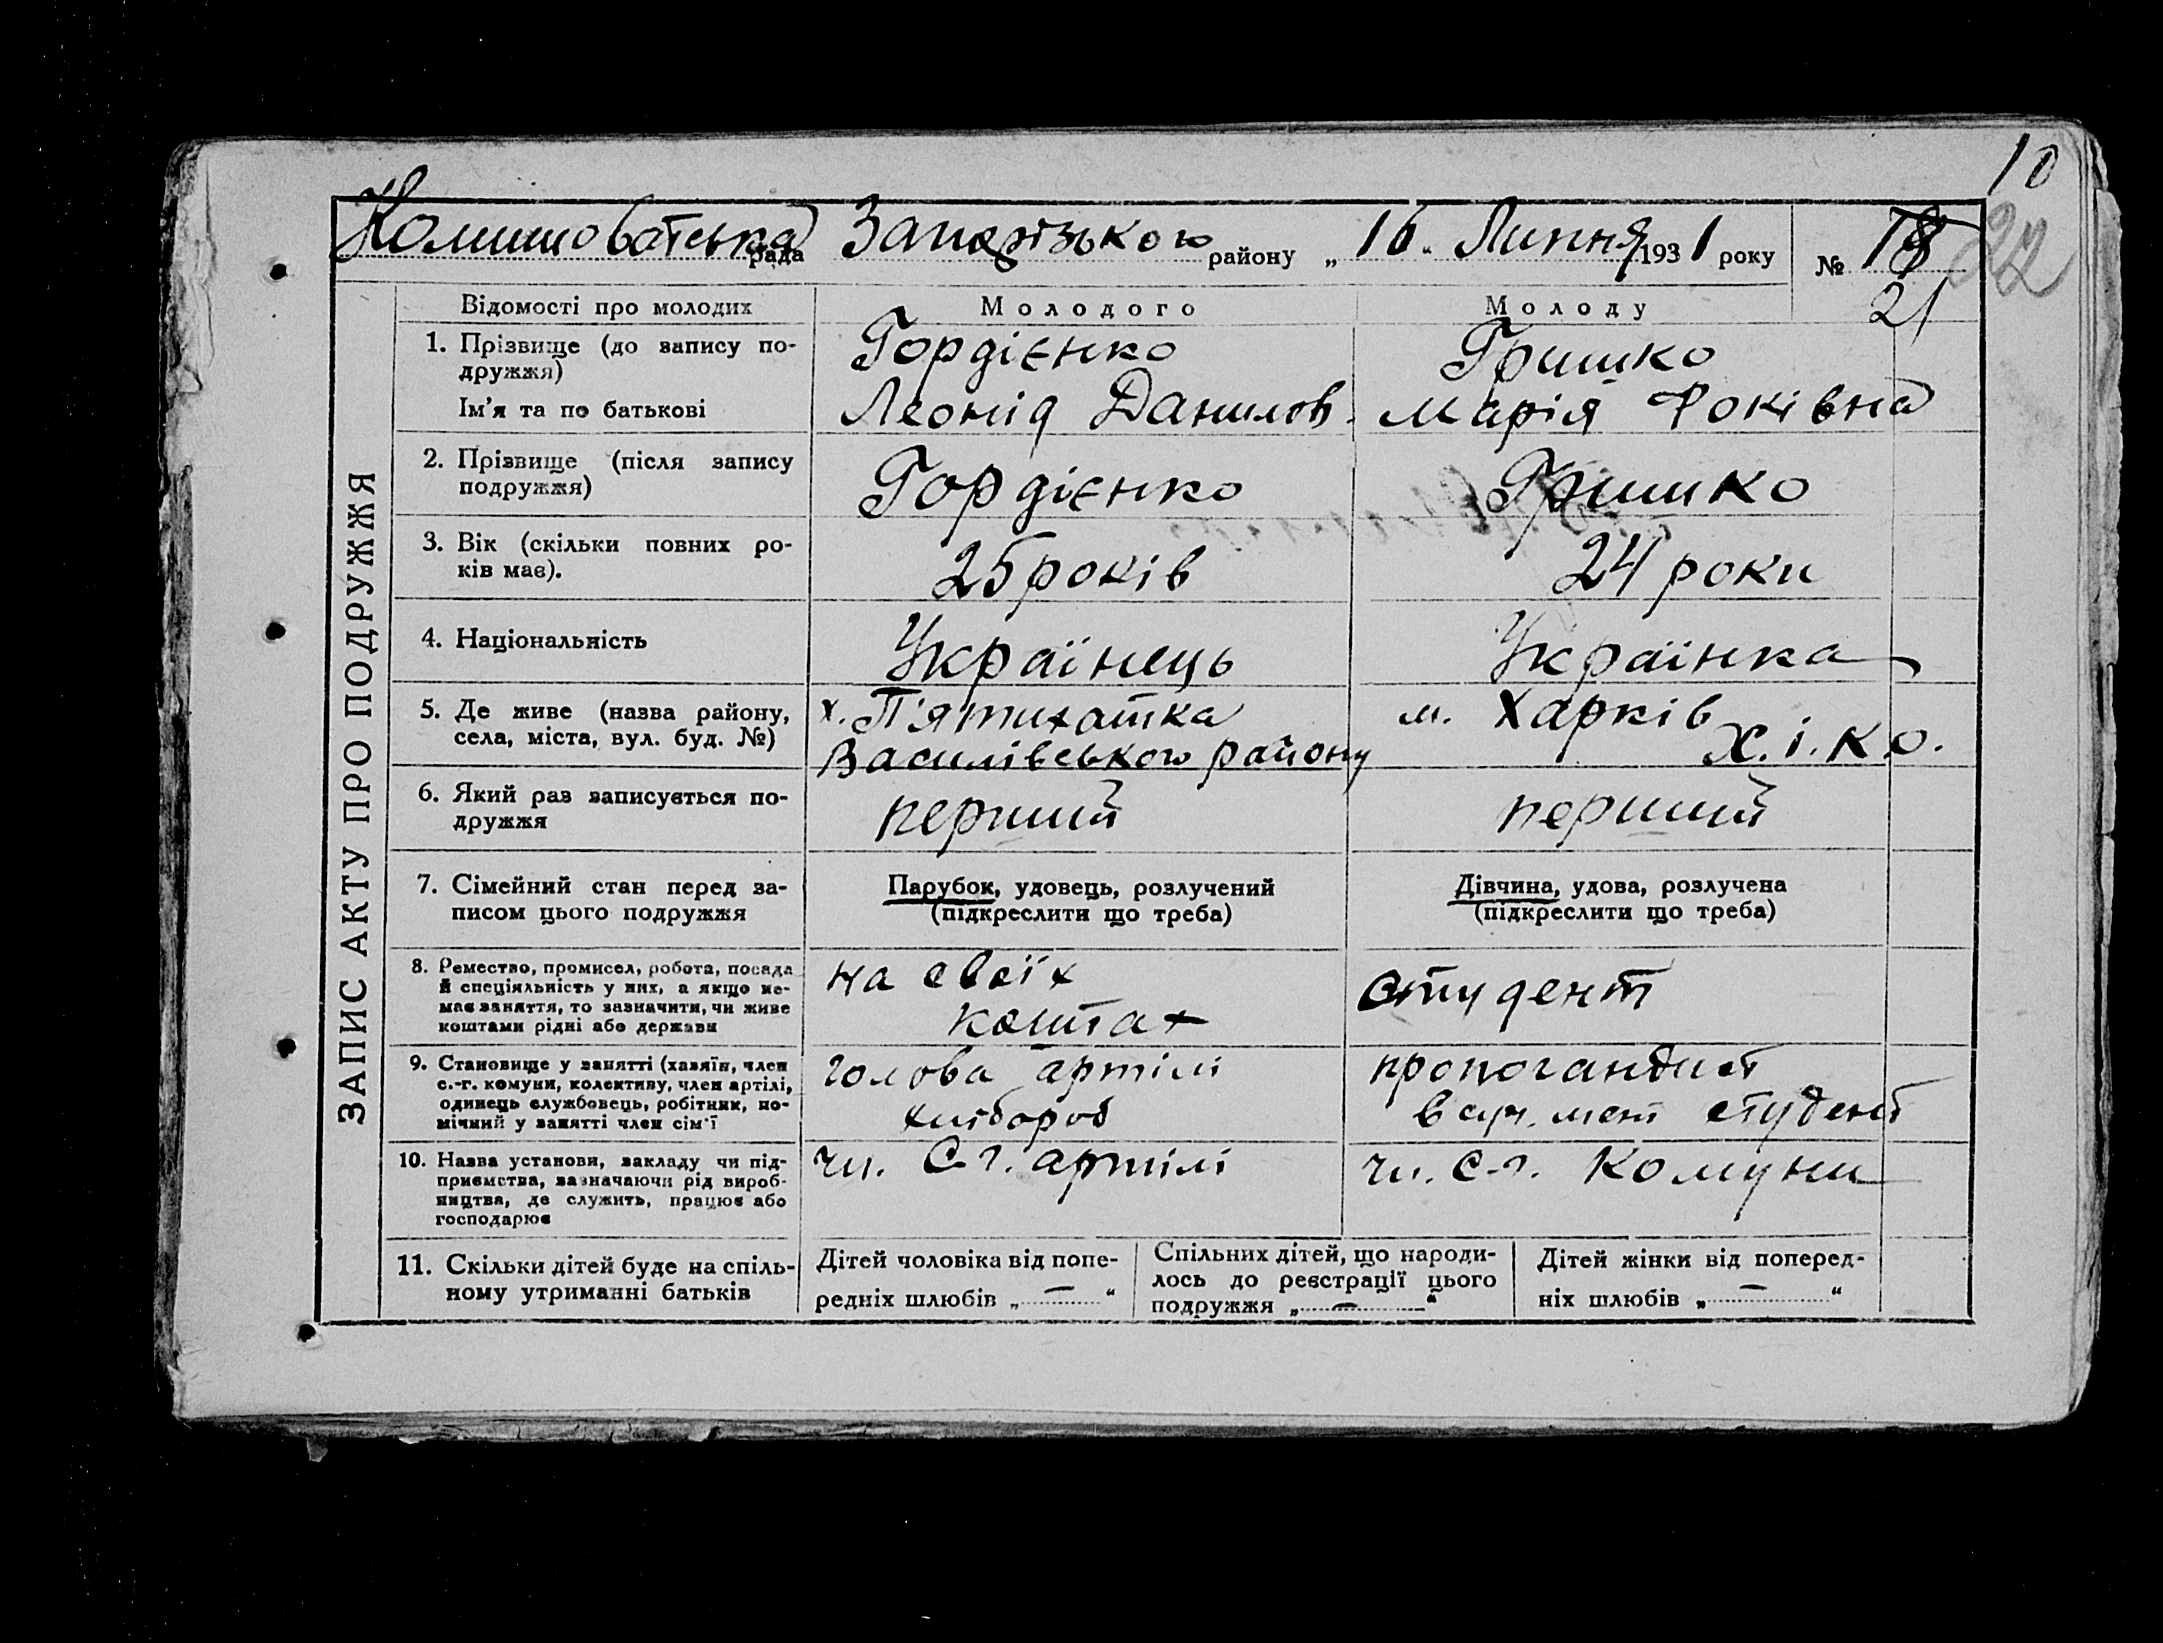 10
Комишоватська рада Запорізького району „ 16 " Липня 1931 року № 18
22
21
ЗАПИС АКТУ ПРО ПОДРУЖЖЯ
Відомості про молодих Молодого Молоду
1. Прізвище (до запису по-
дружжя) Гордієнко Гришко
Ім'я та по батькові Леонід Данилов. Марія Фоківна
2. Прізвище (після запису
подружжя) Гордієнко Гришко
3. Вік (скільки повних ро-
ків має). 25 років 24 роки
4. Національність Українець Українка
5. Де живе (назва району,
села, міста, вул. буд. №)
х. П'ятихатка
Василівського району
м. Харків
Х.І.К.О.
6. Який раз записується по-
дружжя перший перший
7. Сімейний стан перед за-
писом цього подружжя
Парубок, удовець, розлучений
(підкреслити що треба)
Дівчина, удова, розлучена
(підкреслити що треба)
8. Ремество, промисел, робота, посада
й спеціяльність у них, а якщо не-
має заняття, то зазначити, чи живе
коштами рідні або держави
на своїх
коштах
студент
9. Становище у занятті (хазяїн, член
с.-г. комуни, колективу, член артілі,
одинець службовець, робітник, по-
мічний у занятті член сім'ї
голова артілі
хлібороб
пропогандист
студент
10. Назва установи, закладу чи під-
приємства, зазначаючи рід вироб-
ництва, де служить, працює або
господарює
чл. С-г. артілі
чл. с-г. Комуни
11. Скільки дітей буде на спіль-
ному утриманні батьків
Дітей чоловіка від попе-
редніх шлюбів „ — "
Спільних дітей, що народи-
лось до реєстрації цього
подружжя „ — "
Дітей жінки від поперед-
ніх шлюбів „ — "